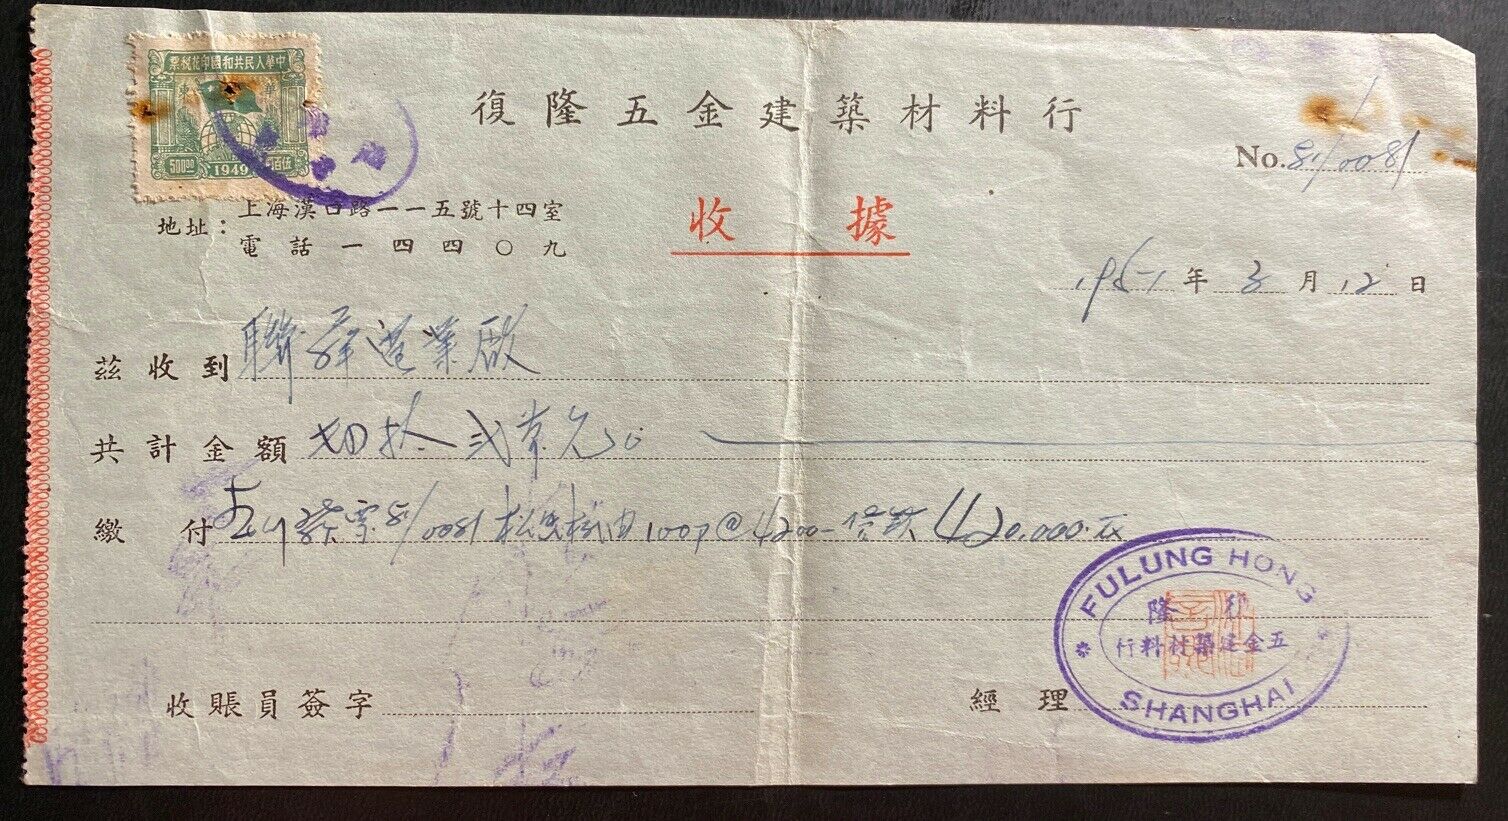 中華人民共和國印花稅票
50000 1949 伍佰
復隆五金建築材料行
No. 51/0081
地址：上海漢口路一一五號十四室
電話一四四〇九
收據
1951年3月12日
茲收到
共計金額 肆拾弍萬元
繳付 51/0081 100 @ 4200- 420,000.
FULUNG HONG
隆
五金建築材料行
SHANGHAI
收賬員簽字
經理